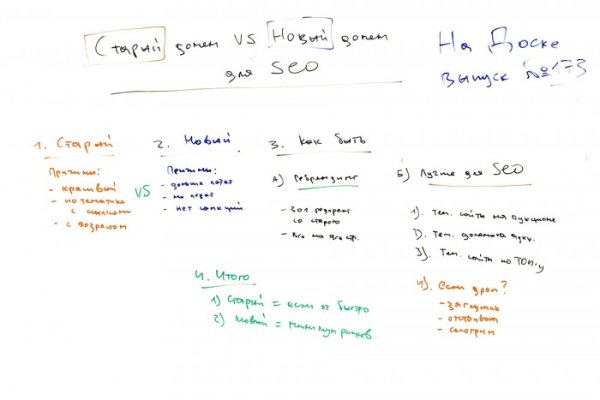 Старый домен VS Новый домен
для SEO
На Доске
выпуск №173
1. Старый
Причины:
- красивый
- по тематике
с ссылками
- с возрастом
VS
2. Новый
Причины:
- дольше
- не
- нет санкций
3. Как быть
А) Ребрендинг
- 301 редирект
со старого
- все на все стр.
Б) Лучше для SEO
1). Тем. сайты на аукционе
2). Тем. домены аукц.
3). Тем. сайты по ТОП-у
4). если дроп?
- заглушка
- отстойник
- смотрим
4. Итого
1) Старый = если ок быстро
2) Новый = минимум рисков